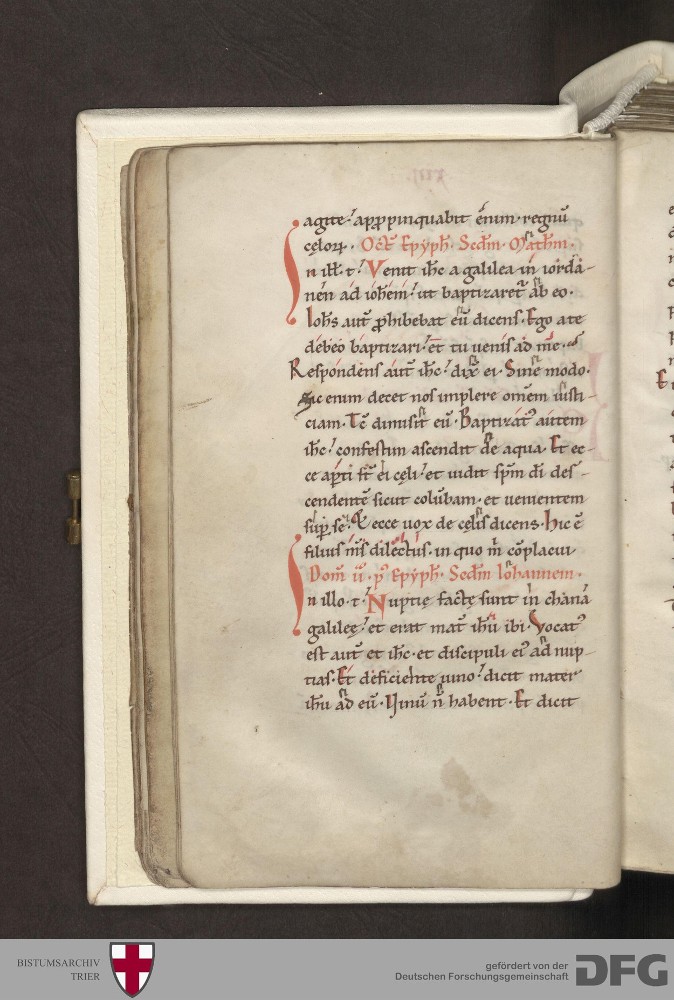 agite. appropinquabit enim regnū
cęloꝝ. Oct̄ Epyph̄. Scd̄m Math̄m.
In ill̄. t. Venit ih̄c a galilea in iorda-
nen ad ioh̄em. ut baptizaret᷑ ab eo.
Ioh̄s aut̄ ꝓhibebat eū dicens. Ego a te
debeo baptizari. et tu uenis ad me.
Respondens aut̄ ih̄c. dix̄ ei. Sine modo.
Sic enim decet nos implere om̄em iusti-
ciam. Tc̄ dimisit eū. Baptizat᷒ autem
ih̄c. confestim ascendit de aqua. Et ec-
ce apti st̄ ei cęli. et uidit sp̄m dī des-
cendentē sicut colūbam. et uenientem
sup se. Et ecce uox de cęlis dicens. Hic ē
filius m̄s dilectus. in quo m̄ cōplacui.
Dom̄ ii. p᷒ Epyph̄. Scd̄m Iohannem.
In illo. t. Nuptię factę sunt in chana
galileę. et erat mat̄ ih̄u ibi. Vocat᷒
est aut̄ et ih̄c. et discipuli ei᷒ ad nup-
tias. Et deficiente uino. dicit mater
ih̄u ad eū. Vinū n̄ habent. Et dicit
BISTUMSARCHIV
TRIER
gefördert von der
Deutschen Forschungsgemeinschaft
DFG